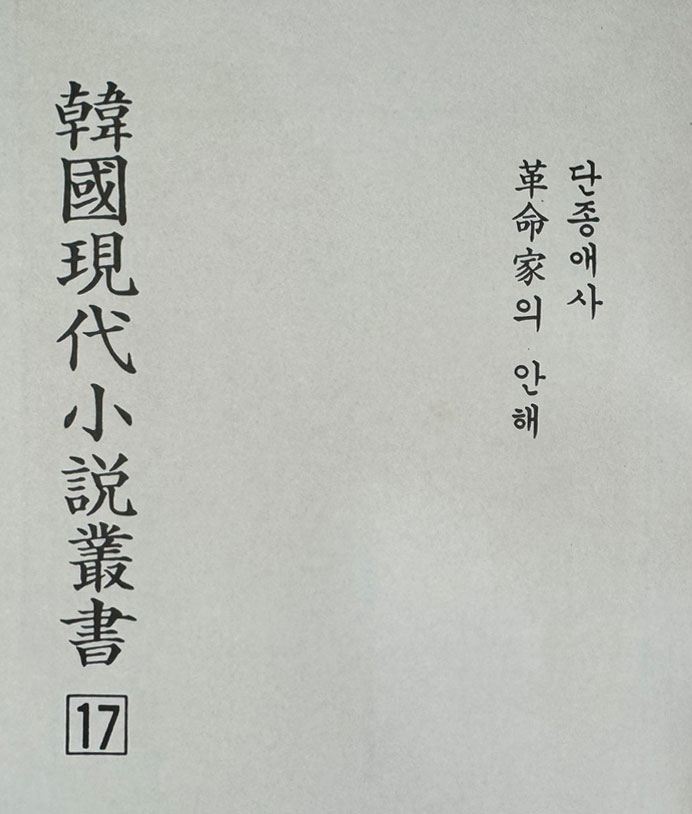 단종애사
革命家의 안해
韓國現代小説叢書
17